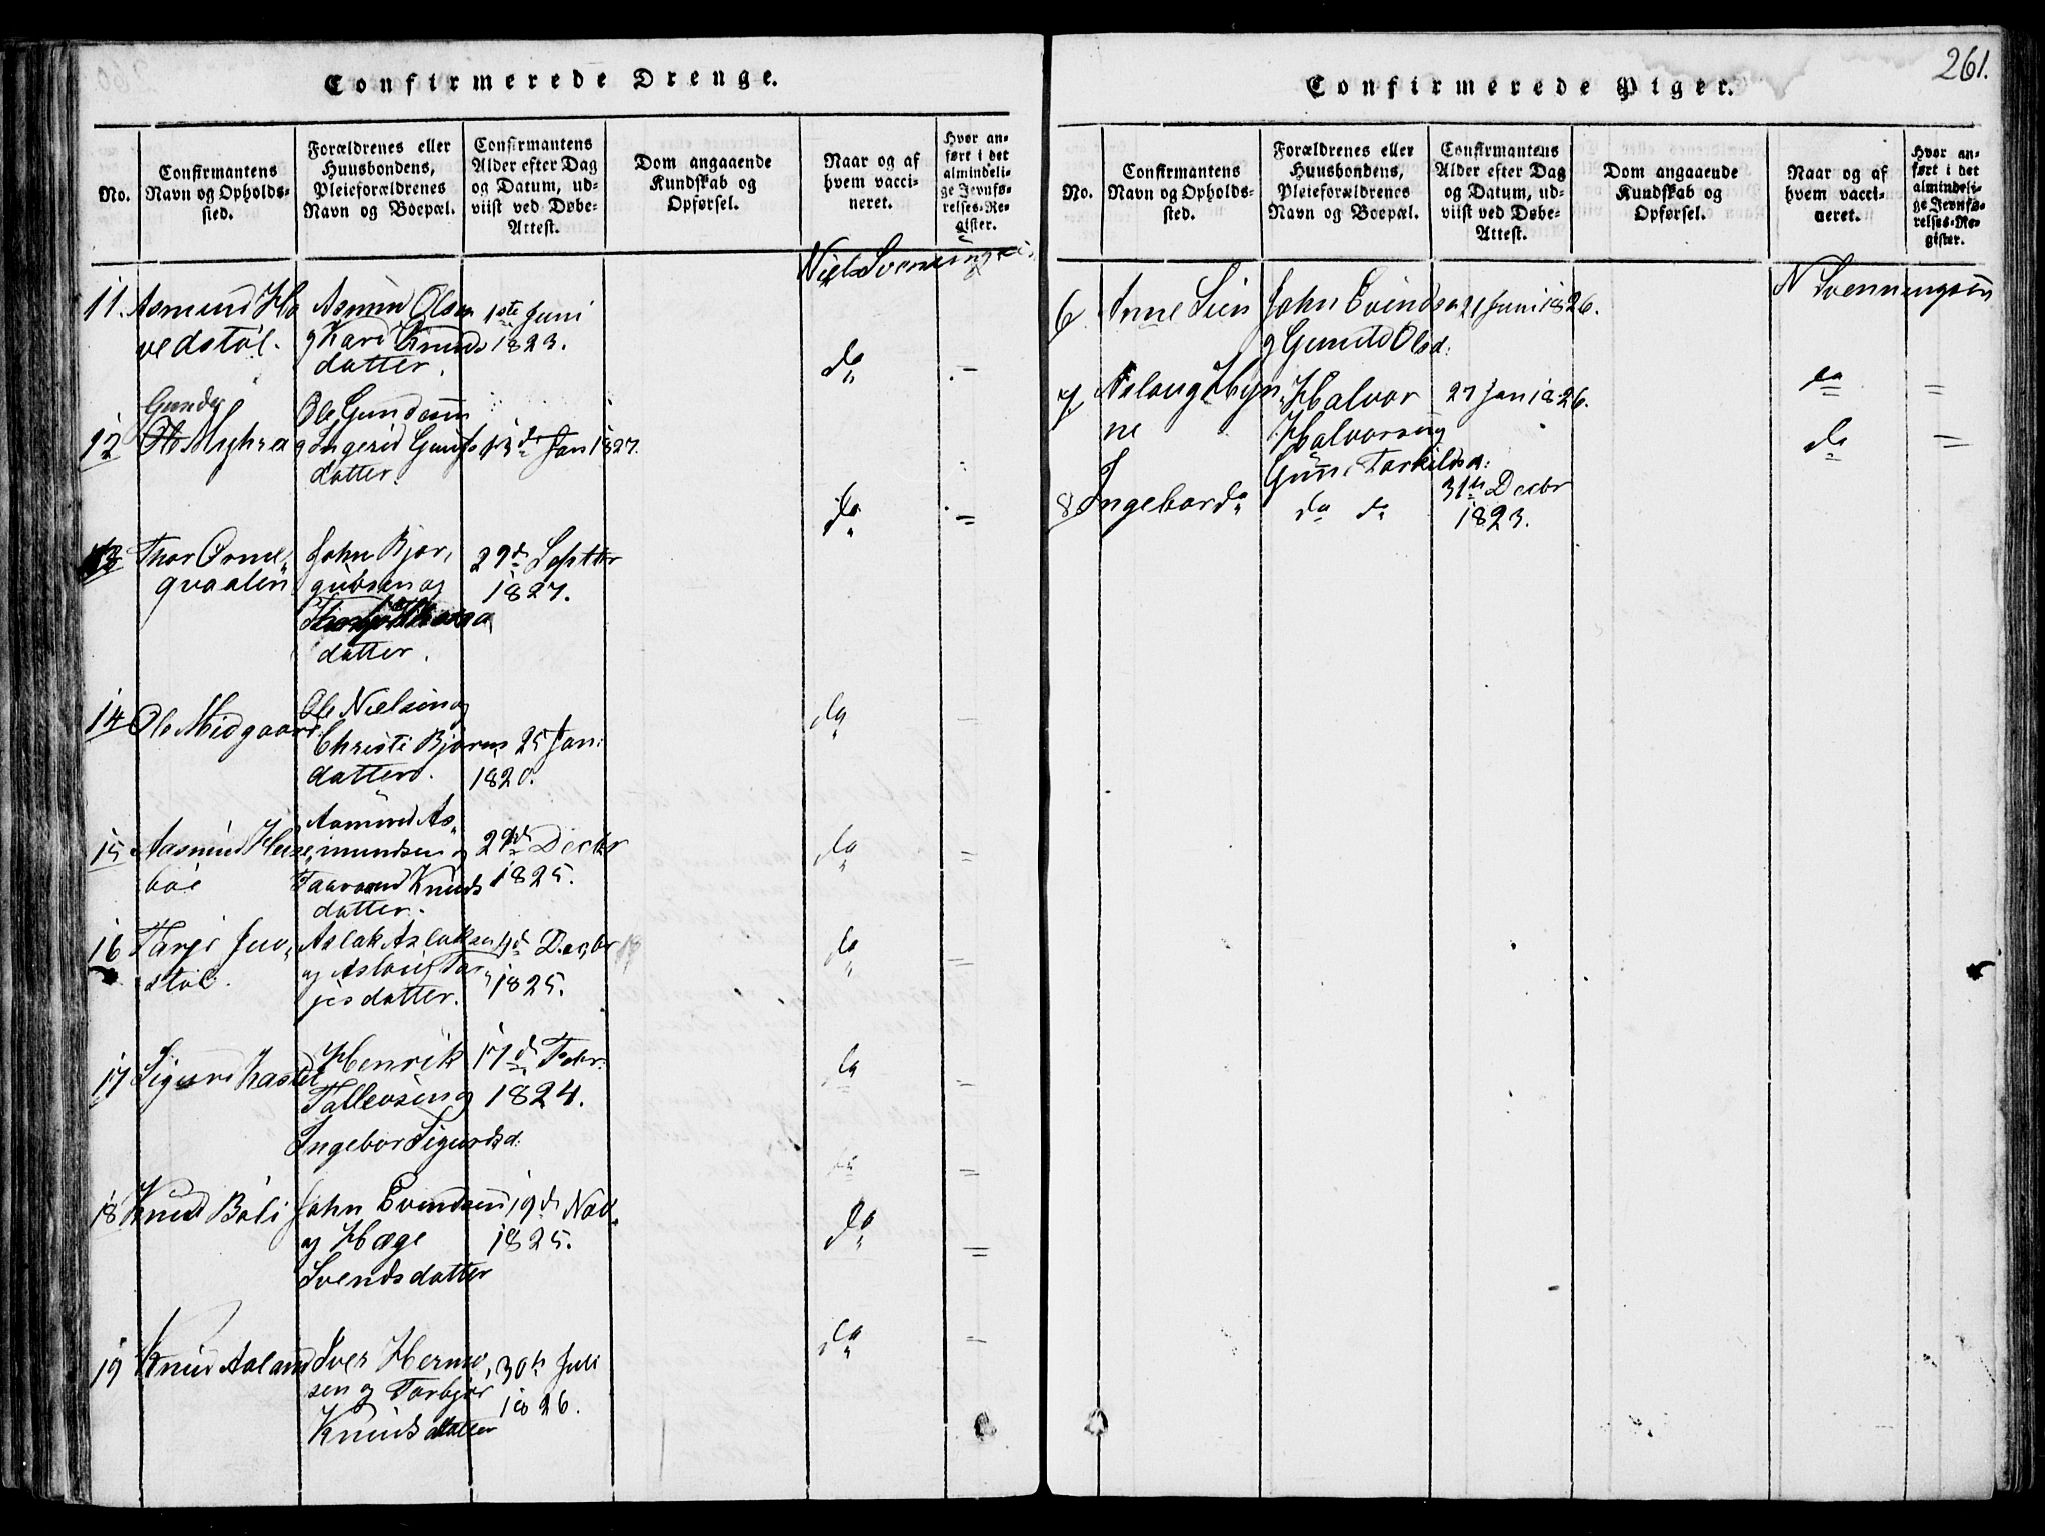 261.
Confirmerede Drenge.
No.
Confirmantens
Navn og Opholds-
sted.
Forældrenes eller
Huusbondens,
Pleieforældrenes
Navn og Boepæl.
Confirmantens
Alder efter Dag
og Datum, ud-
viist ved Døbe-
Attest.
Dom angaaende
Kundskab og
Opførsel.
Naar og af
hvem vacci-
neret.
Hvor an-
ført i det
almindeli-
ge Jevnfø-
relses-Re-
gister.
Niels
11. Asmund Ho
vedstøl.
Olsen
og Kari Knuds
datter.
1ste Juni
1823.
da
Gunder
12 Ole Myhra
Ole Gundersen
og Ingerid
datter.
13d Jan 1827.
da =
13 Thor
qvaalen
John Bjør,
og
datter.
29d Septbr
1827.
14 Ole Midgaard
Ole Nielsen og
Christi Bjørns
datter.
25 Jan:
1820.
da
15 Aasmund
bøe
Aasmund As,
mundsen og
Knuds
datter.
Decbr
1825.
da =
16 Tarje Juv,
støl.
Aslak Aslaksen
og Aslaug Tar
jesdatter.
4d Decbr
1825.
da =
17 Sigurd
Henrik
Tallevsen og
Ingebor Sigurdsd:
17d Febr:
1824.
da =
18 Knud Bøli
John Evendsen
og Hæge
Svendsdatter
19d Nov.
1825.
da =
19 Knud Aaland
Iver
sen og Torbjør
Knudsdatter
30te Juli
1826.
da =
Confirmerede Piger.
No.
Confirmantens
Navn og Opholds-
sted.
Forældrenes eller
Huusbondens,
Pleieforældrenes
Navn og Boepæl.
Confirmantens
Alder efter Dag
og Datum, ud-
viist ved Døbe-
Attest.
Dom angaaende
Kundskab og
Opførsel.
Naar og af
hvem vacci-
neret.
Hvor an-
ført i det
almindeli-
ge Jevnfø-
relses-Re-
gister.
N Svenningsen
6 Anne Lien
John Evindsen
og Gunild Olsd:
21 Juni 1826.
da =
7. Aslaug
ne
Halvor
Halvorsen og
Torkildsd:
27 Jan 1826.
da =
8 Ingebor do
do do
31te Decbr
1823.